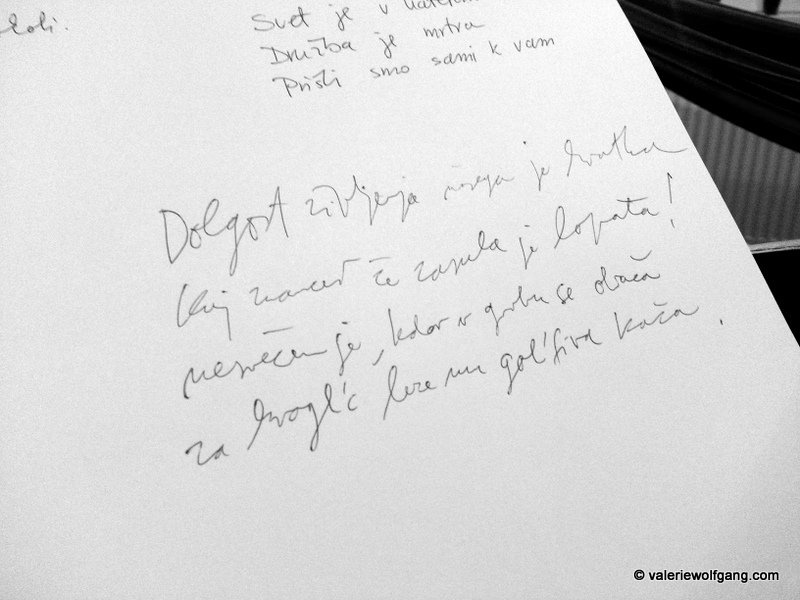 Svet je v
koli.
Družba je mrtva
Prišli smo sami k vam
Dolgost življenja našega je kratka
Kaj znancev že zasula je lopata!
nesrečen je, kdor v grobu se obača
za kroglic leze mu goljfiva kača.
© valeriewolfgang.com